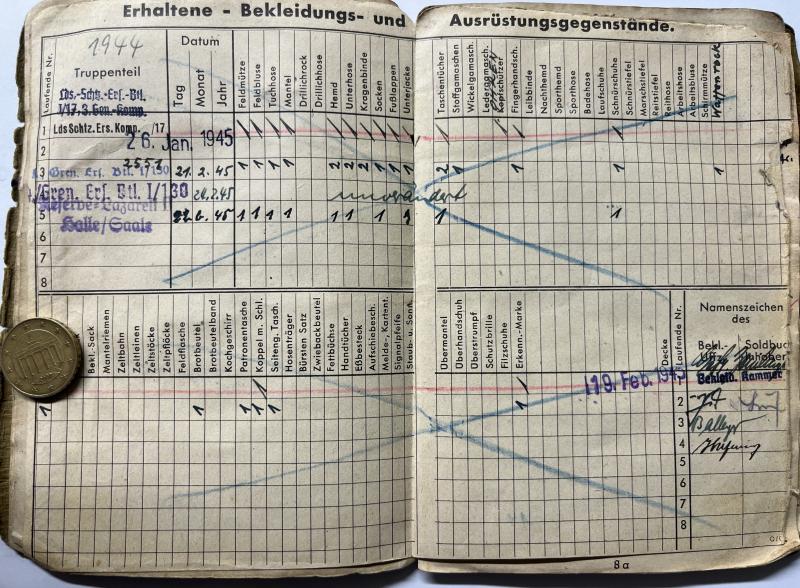 Erhaltene - Bekleidungs- und Ausrüstungsgegenstände.
Laufende Nr.
1944
Truppenteil
Datum
Tag
Monat
Jahr
Feldmütze
Feldbluse
Tuchhose
Mantel
Drillichrock
Drillichhose
Hemd
Unterhose
Kragenbinde
Socken
Fußlappen
Unterjacke
Taschentücher
Stoffgamaschen
Wickelgamasch.
Ledergamasch.
Kopfschützer
Fingerhandsch.
Leibbinde
Nachthemd
Sporthemd
Sporthose
Badehose
Laufschuhe
Schnürschuhe
Schnürstiefel
Marschstiefel
Reitstiefel
Reithose
Arbeitshose
Arbeitsbluse
Schirmmütze
Waffenrock
Lds.-Schtz.-Ers.-Btl.
I/17, 3. Gen.-Komp.
1 Lds Schtz. Ers. Komp. /17
26. Jan. 1945
2
2551
3 Gren. Ers. Btl. I/130 21. 2. 45 1 1 1 1 2 2 2 1 1 1 2 1 1 1 1
4 Gren. Ers. Btl. I/130 2.45 unverändert
Reserve-Lazarett
5 6. 45 1 1 1 1 1 1 1 1 1 1
Halle/Saale
6
7
8
Bekl.-Sack
Mantelriemen
Zeltbahn
Zeltleinen
Zeltstöcke
Zeltpflöcke
Feldflasche
Brotbeutel
Brotbeutelband
Kochgeschirr
Patronentasche
Koppel m. Schl.
Seiteng. Tasch.
Hosenträger
Bürsten Satz
Zwiebackbeutel
Fettbüchse
Handtücher
Eßbesteck
Aufschiebesch.
Melde-, Kartent.
Signalpfeife
Staub- u. Sonn.
Übermantel
Überhandschuh
Überstrumpf
Schutzbrille
Filzschuhe
Erkenn.-Marke
Decke
Laufende Nr.
Namenszeichen
des
Bekl.-
Uffz.
Soldbuch
Inhabers
19. Feb. 1945
Bekleid. Kammer
1 1 1 1 1 1
2
3
4
5
6
7
8
8a